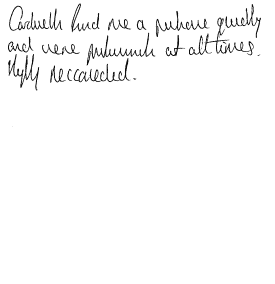 Cardwells find me a purchase quickly
and were professional at all times.
Highly reccomended.